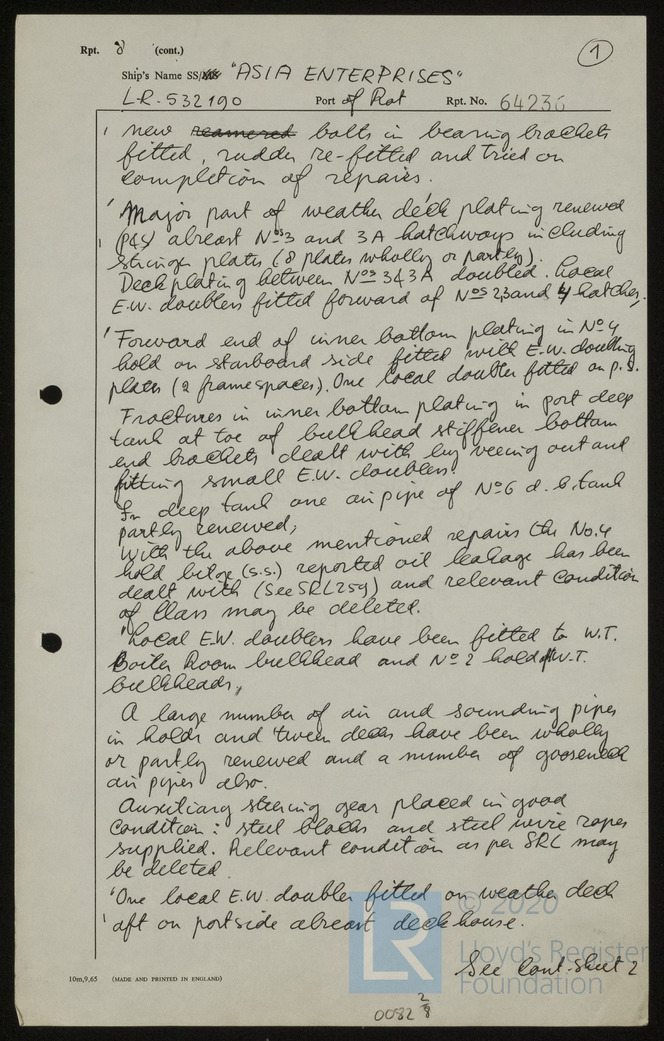 Rpt. 8 (cont.)
1
Ship's Name SS/MS "ASIA ENTERPRISES"
LR-532190 Port of Rot Rpt. No. 64236
new reamered bolts in bearing brackets
fitted, rudder re-fitted and tried on
completion of repairs.
Major part of weather deck plating renewed
(P&S) abreast Nos 3 and 3A hatchways including
stringer plates (8 plates wholly or partly).
Deck plating between Nos 3&3A doubled. Local
E.W. doublers fitted forward of Nos 2,3 and 4 hatches.
Forward end of inner bottom plating in No 4
hold on starboard side fitted with E.W. doubling
plates (2 frame spaces). One local doubler fitted on p.s.
Fractures in inner bottom plating in port deep
tank at toe of bulkhead stiffener bottom
end brackets dealt with by veeing out and
fitting small E.W. doublers.
In deep tank one air pipe of No 6 d.b. tank
partly renewed;
With the above mentioned repairs the No.4
hold bilge (s.s.) reported oil leakage has been
dealt with (See SRL 259) and relevant Condition
of Class may be deleted.
"Local E.W. doublers have been fitted to W.T.
Boiler Room bulkhead and No 2 hold W.T.
bulkheads"
A large number of air and sounding pipes
in holds and tween decks have been wholly
or partly renewed and a number of gooseneck
air pipes also.
Auxiliary steering gear placed in good
condition: steel blocks and steel wire ropes
supplied. Relevant condition as per SRL may
be deleted.
"One local E.W. doubler fitted on weather deck
aft on portside abreast deckhouse.
See Cont. Sheet 2
10m,9,65 (MADE AND PRINTED IN ENGLAND)
0082 2/8
LR © 2020
Lloyd's Register
Foundation